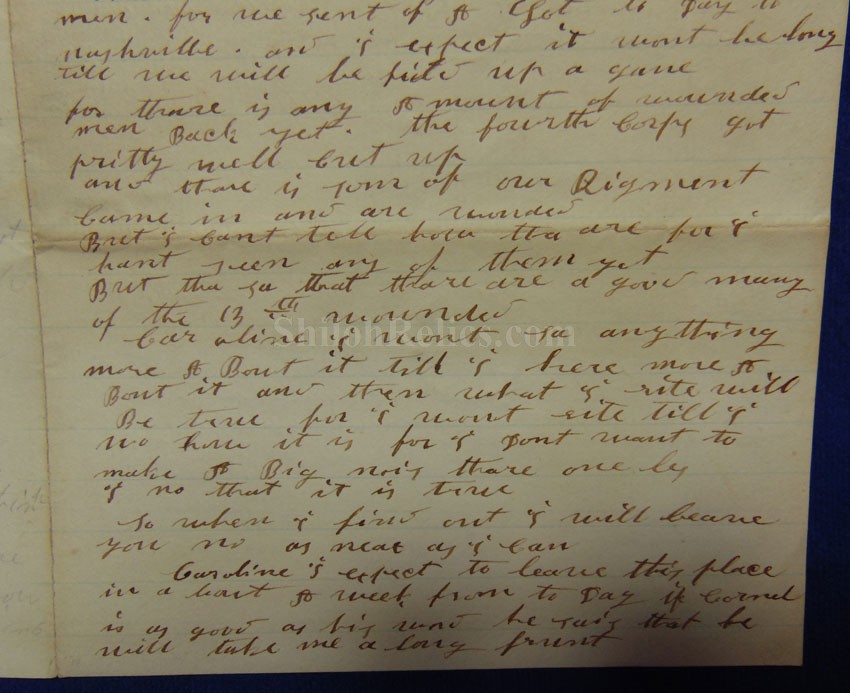 men. for we sent of A Lot to Day to
nashville. and i expect it wont be long
till we will be fild up a gane
for thare is any A mount of wounded
men Back yet. the fourth Corps got
pritty well cut up
and thare is som of our Rigment
Came in and are wonded
But i Cant tell how tha are for i
hant seen any of them yet
But tha sa that thare are a good many
of the 13th wounded
Caroline i wont sa anything
more A Bout it till i here more A
Bout it and then what i rite will
Be true for i wont rite till i
no how it is for i Dont want to
make A Big nois thare one ly
i no that it is true
So when i find out i will leave
you no as near as i Can
Caroline i expect to leave this place
in a bout A week from to Day if Cornel
is as good as his word he sais that he
will take me a long frunt
ShilohRelics.com